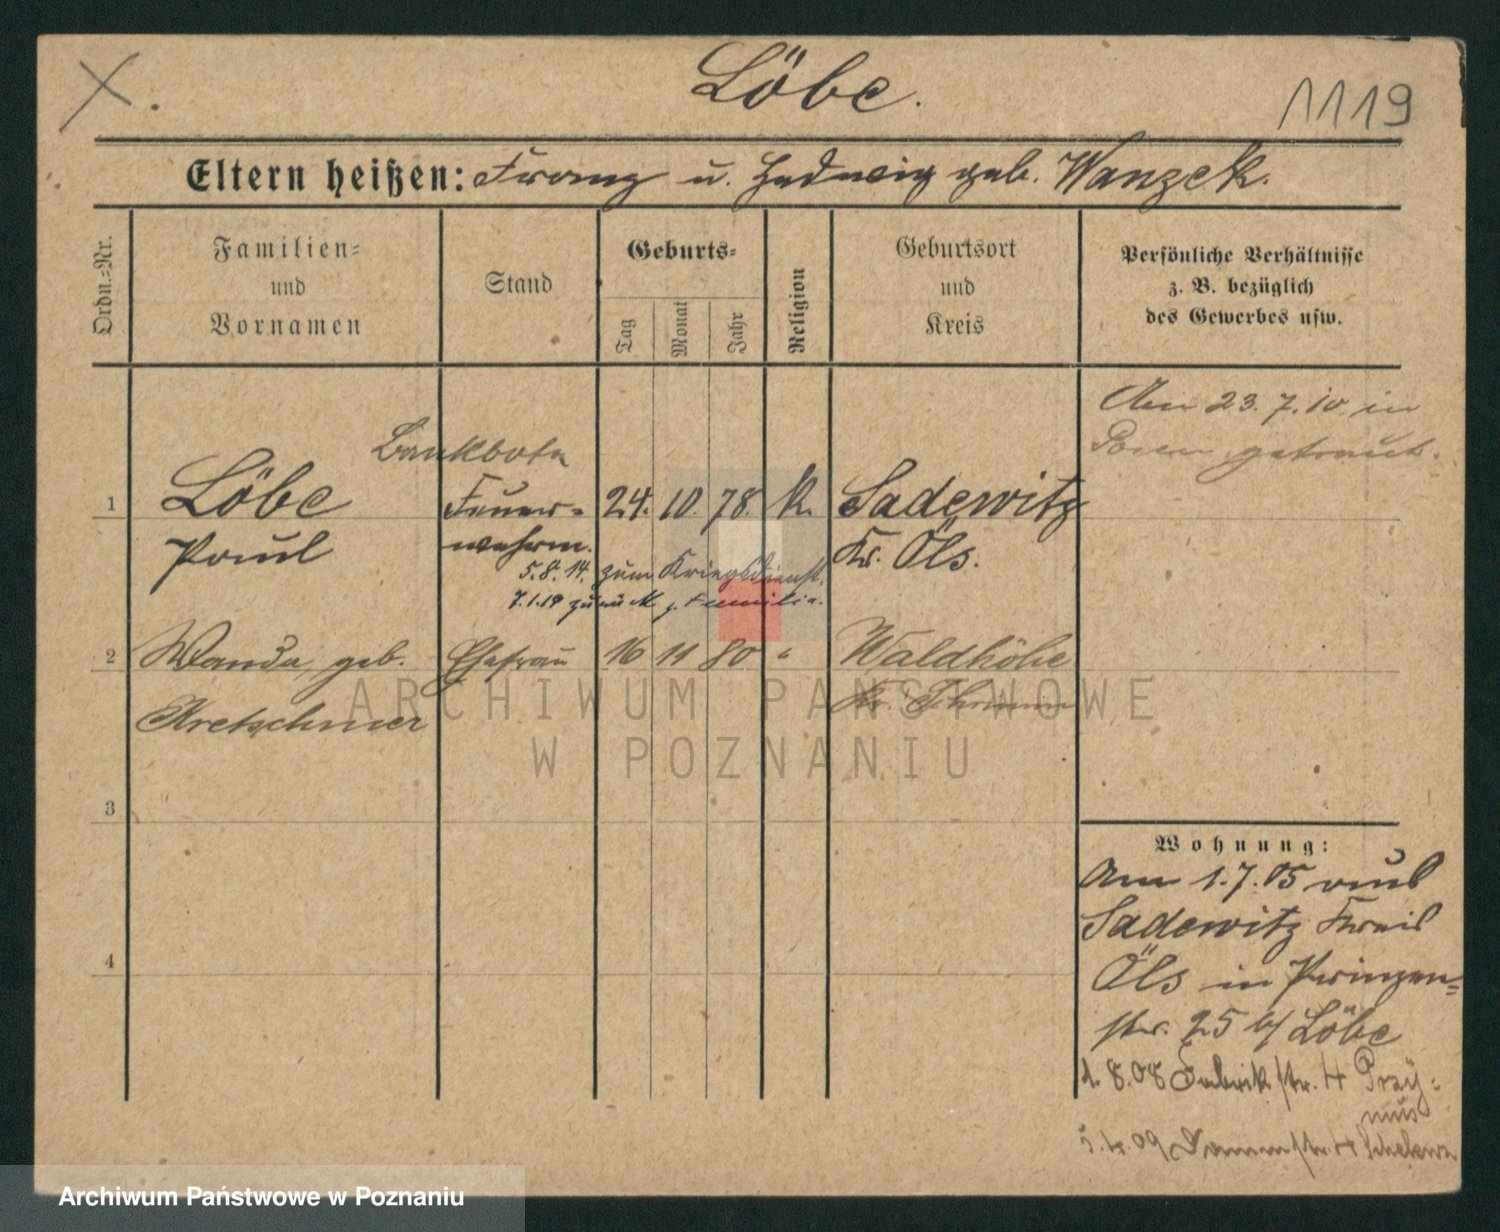 Löbe.
1119
Eltern heißen: Franz u. Hedwig geb. Wanzek.
Ordn.=Nr.
Familien=
und
Vornamen
Stand
Geburts=
Tag
Monat
Jahr
Religion
Geburtsort
und
Kreis
Persönliche Verhältnisse
z. B. bezüglich
des Gewerbes usw.
Am 23.7.10 in
Posen getraut.
Bankbote
1 Löbe Feuer= 24. 10. 78. k. Sadewitz
Paul wehrm. Kr. Öls.
5.8.14. zum Kriegsdienst.
7.1.19 zurück z. Familie.
2 Wanda geb. Ehefrau 16 11 80 " Waldhöhe
Kretschmer Kr.
3
4
Wohnung:
Am 1.7.05 aus
Sadewitz Kreis
Öls in Prinzen=
str. 25 b/ Löbe
1.8.08 Fabrikstr. 4 Przy=
mus
5.4.09 Dammstr. 4
ARCHIWUM PAŃSTWOWE
W POZNANIU
Archiwum Państwowe w Poznaniu